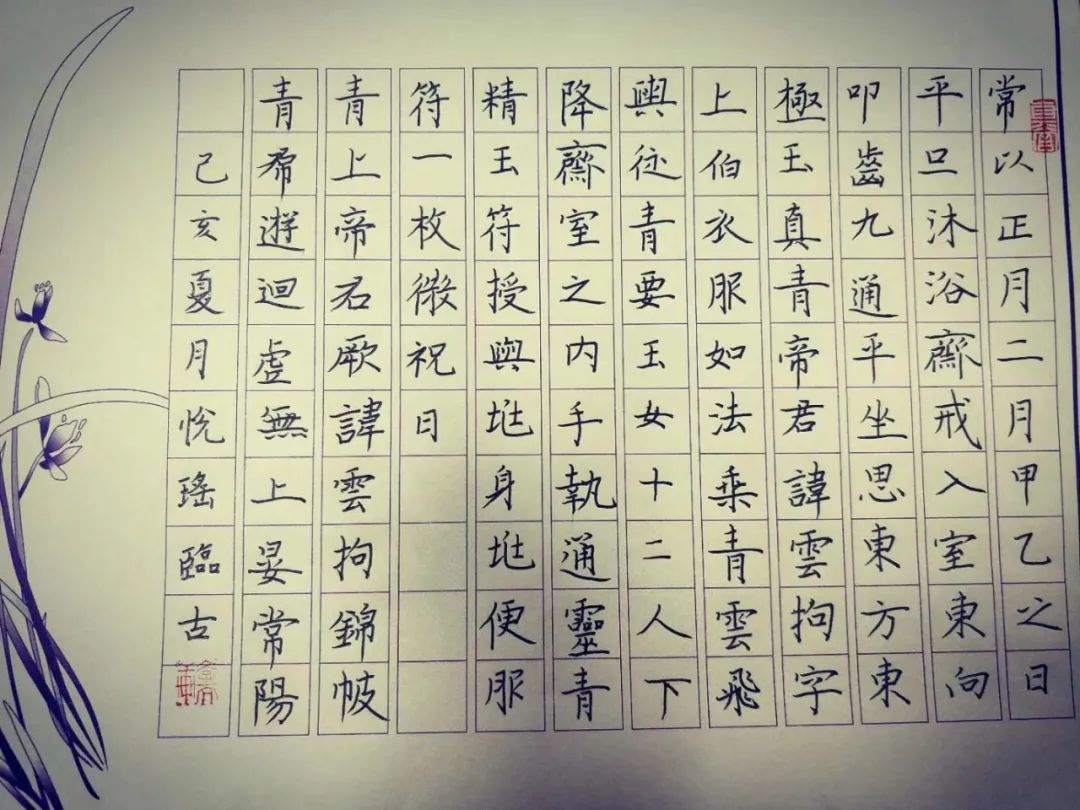 常以正月二月甲乙之日
平旦沐浴齋戒入室東向
叩齒九通平坐思東方東
極玉真青帝君諱雲拘字
上伯衣服如法乘青雲飛
輿從青要玉女十二人下
降齋室之内手執通靈青
精玉符授與兆身兆便服
符一枚微祝曰
青上帝君厥諱雲拘錦帔
青帬遊迴虛無上晏常陽
己亥夏月悅瑤臨古